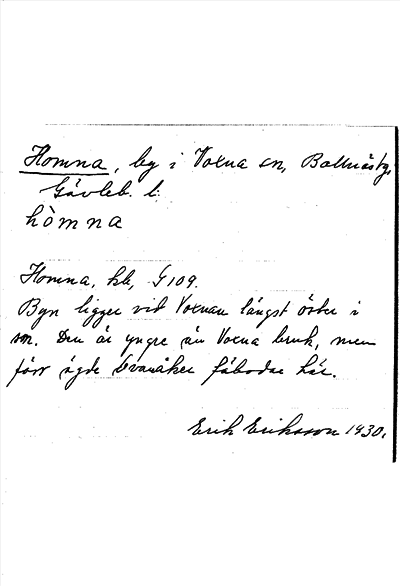 Homna, by i Voxna sn, Bollnäs tg.
Gävleb. l.
hòmna
Homna, hb, G109.
Byn ligger vid Voxnan längst öster i
sn. Den är yngre än Voxna bruk, men
förr ägde Svanåker fäbodar här.
Erik Eriksson 1930.